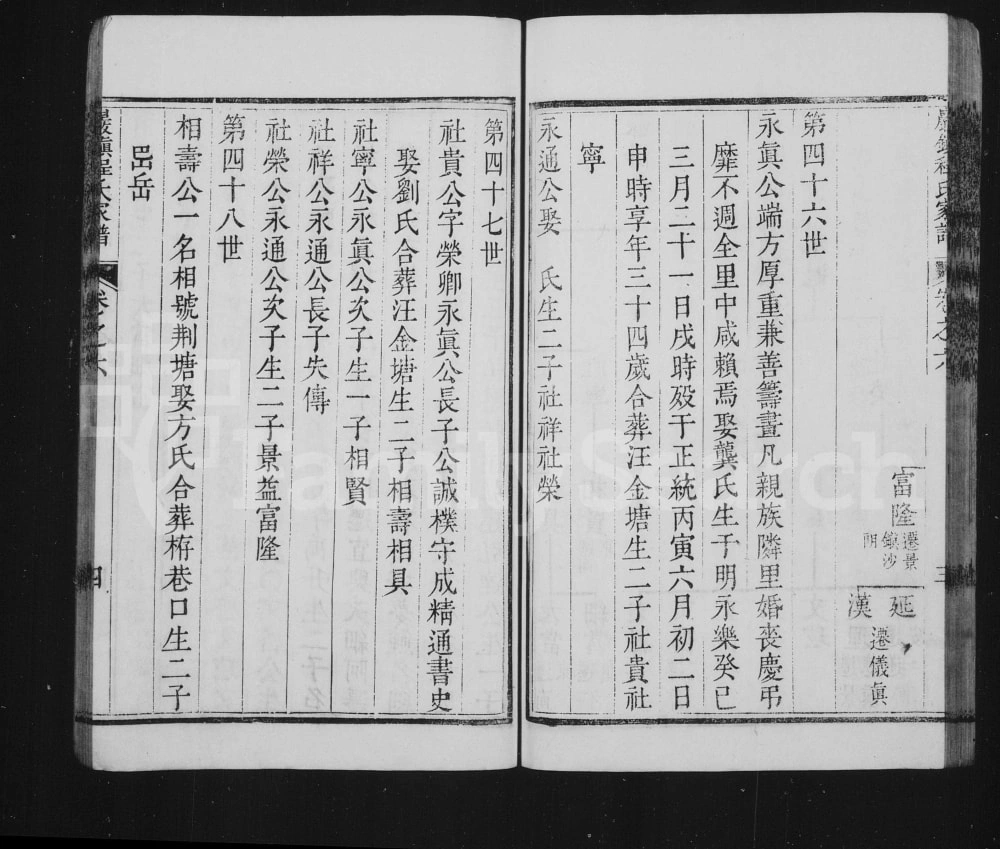 富隆 遷景鎮沙
延
漢 遷儀眞
第四十六世
永眞公端方厚重兼善籌畫凡親族隣里婚喪慶弔
靡不週全里中咸賴焉娶龔氏生于明永樂癸巳
三月二十一日戌時殁于正統丙寅六月初二日
申時享年三十四歲合葬汪金塘生二子社貴社
寧
永通公娶 氏生二子社祥社榮
三
第四十七世
社貴公字榮卿永眞公長子公誠樸守成精通書史
娶劉氏合葬汪金塘生二子相壽相具
社寧公永眞公次子生一子相賢
社祥公永通公長子失傳
社榮公永通公次子生二子景益富隆
第四十八世
相壽公一名相號荆塘娶方氏合葬栫巷口生二子
岳
程氏家譜
卷之六
四
FamilySearch